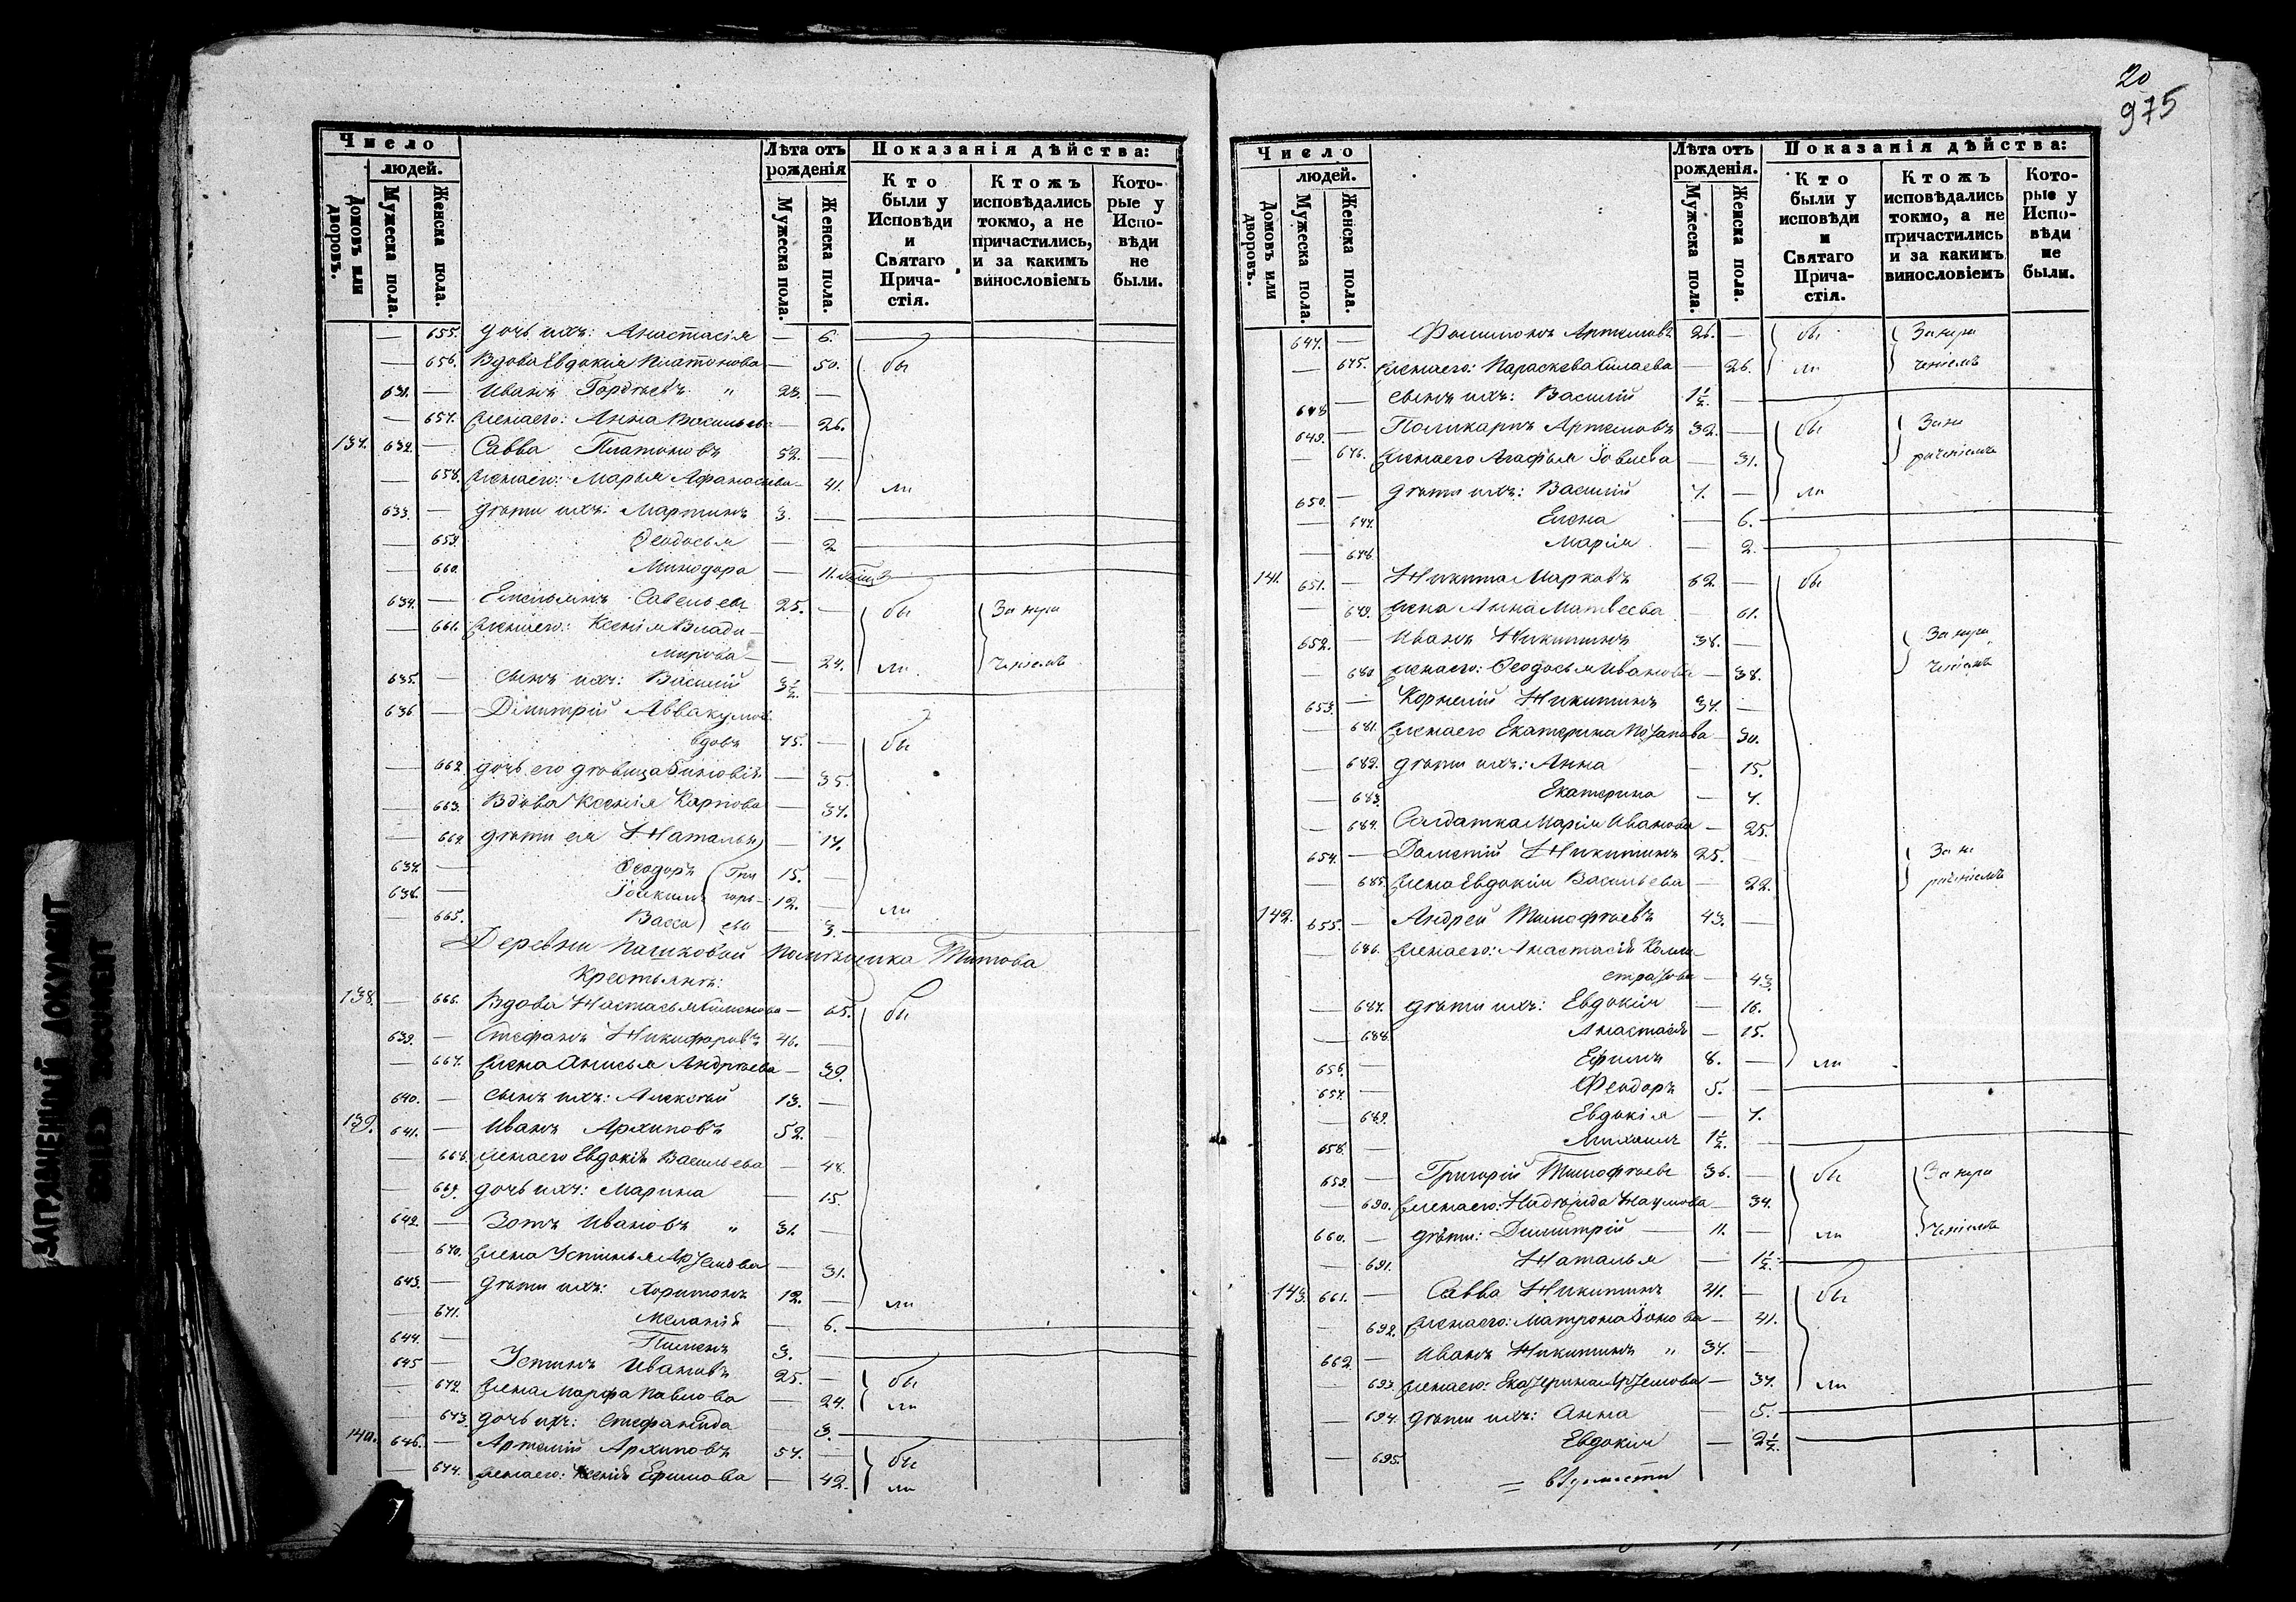 20
975
Число
людей.
Домовъ или дворовъ.
Мужеска пола.
Женска пола.
Лѣта отъ рожденія
Мужеска пола.
Женска пола.
Показанія дѣйства:
Кто были у Исповѣди и Святаго Прича-стія.
Ктожъ исповѣдались токмо, а не причастились, и за какимъ винословіемъ
Кото-рые у Испо-вѣди не были.
— 655. дочь ихъ: Анастасія — 6.
— 656. Вдова Евдокія Платонова — 50. бы
631. — Иванъ Гордѣевъ " 23. —
— 657. жена его: Анна Васильева — 26.
137. 632. — Савва Платоновъ 52. —
— 658. жена его: Марья Афанасьева — 41. ли
633. — дѣти ихъ: Мартинъ 3. —
— 659. Ѳеодосья — 2
— 660. Минодора — 11.
634. — Емельянъ Савельевъ 25. — бы За нера
— 661. жена его: Ксенія Влади-
мирова — 24. ли ченіемъ
635. — сынъ ихъ: Василій 3½. —
636. — Димитрій Аввакумовъ
вдовъ 75. — бы
— 662. дочь его дѣвица Зиновія — 35.
— 663. Вдова Ксенія Карпова — 37.
— 664. дѣти ея Наталья — 17.
637. — Ѳеодоръ Гри 15. —
638. — Іоакимъ горь- 12. — ли
— 665. Васса евы — 3.
Деревни помѣщика Титова
Крестьяне:
138. — 666. Вдова Настасья Симонова — 65. бы
639. — Стефанъ Никифоровъ 46. —
— 667. жена Анисья Андрѣева — 39.
640. — сынъ ихъ: Алексѣй 13. —
139. 641. — Иванъ Архиповъ 52. —
— 668. жена его Евдокія Васильева — 48.
— 669. дочь ихъ: Марина — 15.
642. — Зотъ Ивановъ " 31. —
— 670. жена Устинья Артемова — 31.
643. — дѣти ихъ: Харитонъ 12. — ли
— 671. Меланія — 6.
644. — Пименъ 3. —
645 — Устинъ Ивановъ 25. — бы
— 672. жена Марфа Павлова — 24. ли
— 673. дочь ихъ: Стефанида — 3.
140. 646. — Артемій Архиповъ 57. — бы
— 674. жена его: Ксенія Ефимова — 42. ли
Число
людей.
Домовъ или дворовъ.
Мужеска пола.
Женска пола.
Лѣта отъ рожденія.
Мужеска пола.
Женска пола.
Показанія дѣйства:
Кто были у исповѣди и Святаго Прича-стія.
Ктожъ исповѣдались токмо, а не причастились и за какимъ винословіемъ
Кото-рые у Испо-вѣди не были.
647. — Филимонъ Артемовъ 26. — бы За нера
— 675. жена его: Параскева Силаева — 26. ли ченіемъ
648 — сынъ ихъ: Василій 1½. —
649. — Поликарпъ Артемовъ 32. — бы За не
— 676. жена его Агафья Іовлева — 31. раченіемъ
650. — дѣти ихъ: Василій 7. — ли
— 677. Елена — 6.
— 678. Марія — 2.
141. 651. — Никита Марковъ 62. — бы
— 679. жена Анна Матвеева — 61.
652. — Иванъ Никитинъ 38. — За нера
— 680 жена его: Ѳеодосья Иванова — 38. ченіемъ
653. — Корнелій Никитинъ 37. —
— 681. жена его Екатерина Потапова — 30.
— 682. дѣти ихъ: Анна — 15.
— 683. Екатерина — 7.
— 684. Солдатка Марія Иванова — 25.
654. — Никитинъ 25. — За не
— 685. жена Евдокія Васильева — 22. раченіемъ
142. 655. — Андрей Тимофѣевъ 43. —
— 686. жена его: Анастасія Кали-
стратова — 43.
— 687. дѣти ихъ: Евдокія — 16.
— 688. Анастасія — 15.
656. — Ефимъ 8. — ли
657. — Феодоръ 5. —
— 689. Евдокія — 7.
658. — Михаилъ 1½. —
659. — Григорій Тимофѣевъ 36. — бы За нера
— 690. жена его: Надежда Наумова — 34.
660. — дѣти: Димитрій — 11. — ли ченіемъ
— 691. Наталья — 1½.
143. 661. — Савва Никитинъ 41. — бы
— 692. жена его: Матрона — 41.
662. — Иванъ Никитинъ " 37. —
— 693. жена его: Екатерина Артемова — 37. ли
— 694. дѣти ихъ: Анна — 5.
— 695. Евдокія — 2½.
ЗАГРОЖЕНИЙ ДОКУМЕНТ